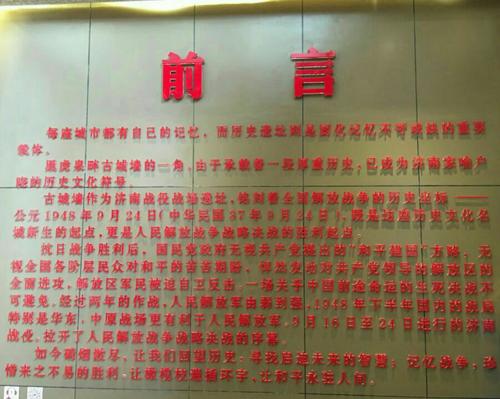 前言
每座城市都有自己的记忆，而历史遗址则是固化记忆不可或缺的重要
载体。
黑虎泉畔古城墙的一角，由于承载着一段厚重历史，已成为济南家喻户
晓的历史文化符号。
古城墙作为济南战役战场遗址，铭刻着全国解放战争的历史坐标——
公元1948年9月24日(中华民国37年9月24日)，既是这座历史文化名
城新生的起点，更是人民解放战争战略决战的胜利起点。
抗日战争胜利后，国民党政府无视共产党提出的"和平建国"方略，无
视全国各阶层民众对和平的苦苦期盼，悍然发动对共产党领导的解放区的
全面进攻，解放区军民被迫自卫反击，一场关乎中国前途命运的生死决战不
可避免。经过两年的作战，人民解放军由弱到强，1948年下半年国内的战局
特别是华东、中原战场更有利于人民解放军，9月16日至24日进行的济南
战役，拉开了人民解放战争战略决战的序幕。
如今硝烟散尽，让我们回望历史，寻找启迪未来的智慧；记忆战争，珍
惜来之不易的胜利，让橄榄枝遍循环宇、让和平永驻人间。